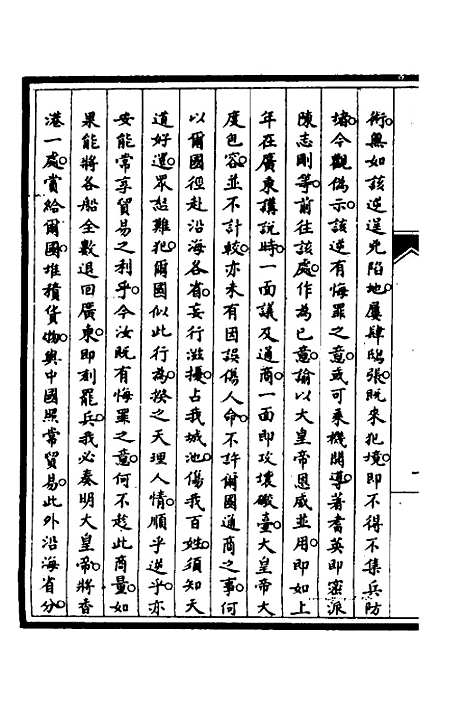 術無如該逆逞兇陷地屢肆鴟張既來犯境即不得不集兵防
堵今觀偽示該逆有悔罪之意或可乘機開導著耆英即密派
陳志剛等前往該處作為己意諭以大皇帝恩威並用即如上
年在廣東講說時一面議及通商一面即攻壞礮臺大皇帝大
度包容並不計較亦未有因誤傷人命不許爾國通商之事何
以爾國徑赴沿海各省妄行滋擾占我城池傷我百姓須知天
道好還眾怒難犯爾國似此行為揆之天理人情順乎逆乎亦
安能常享貿易之利乎今汝既有悔罪之意何不趁此商量如
果能將各船全數退回廣東即刻罷兵我必奏明大皇帝將香
港一處賞給爾國堆積貨物與中國照常貿易此外沿海省分